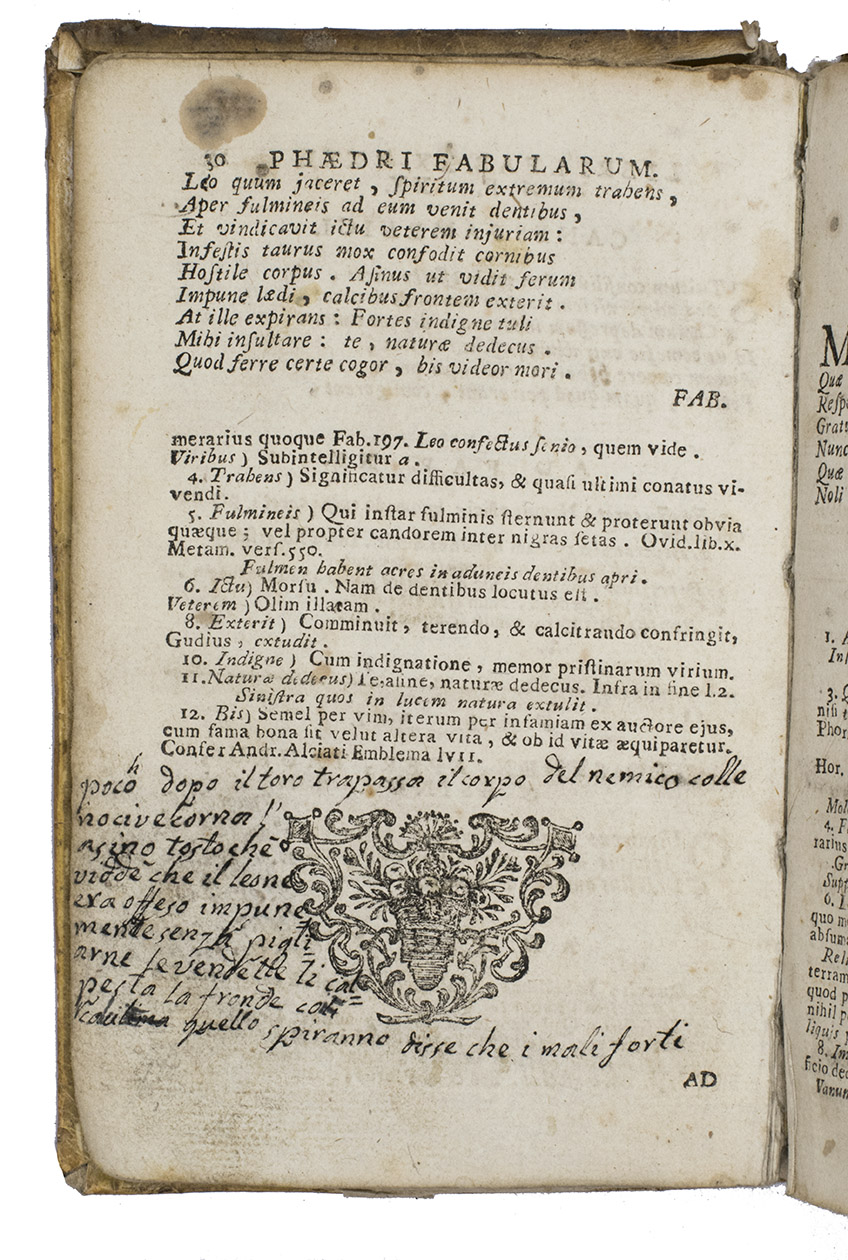 30 PHÆDRI FABULARUM.
Leo quum jaceret, ſpiritum extremum trahens,
Aper fulmineis ad eum venit dentibus,
Et vindicavit ictu veterem injuriam:
Infeſtis taurus mox confodit cornibus
Hoſtile corpus. Aſinus ut vidit ferum
Impune lædi, calcibus frontem exterit.
At ille expirans: Fortes indigne tuli
Mihi inſultare: te, naturæ dedecus.
Quod ferre certe cogor, bis videor mori.
FAB.
merarius quoque Fab.197. Leo confectus ſenio, quem vide.
Viribus) Subintelligitur a.
4. Trahens) Significatur difficultas, & quaſi ultimi conatus vi-
vendi.
5. Fulmineis) Qui inſtar fulminis ſternunt & proterunt obvia
quæque; vel propter candorem inter nigras ſetas. Ovid.lib.x.
Metam. verſ.550.
Fulmen habent acres in aduncis dentibus apri.
6. Ictu) Morſu. Nam de dentibus locutus eſt.
Veterem) Olim illatam.
8. Exterit) Comminuit, terendo, & calcitrando confringit,
Gudius, extudit.
10. Indigne) Cum indignatione, memor priſtinarum virium.
11. Naturæ dedecus) Te, aſine, naturæ dedecus. Infra in fine l.2.
Siniſtra quos in lucem natura extulit.
12. Bis) Semel per vim, iterum per infamiam ex auctore ejus,
cum fama bona ſit velut altera vita, & ob id vitæ æquiparetur.
Confer Andr. Alciati Emblema lvii.
poco dopo il toro trapassa il corpo del nemico colle
nocive corna l'
asino tosto che
vidde che il leone
era offeso impune
mente senza pigli
arne le vendette li cal
pesta la fronde
quello spiranno disse che i mali forti
AD
M
Quæ
Reſp
Grat
Nunc
Quæ
Noli
1. A
Inſ
3.
niſi
Phor
Hor.
Mol
4. F
rarius
Gr
Supp
6. I
quo m
abſum
Rel
terram
quod p
nihil p
liquis
8. Im
ficio dec
Vanun